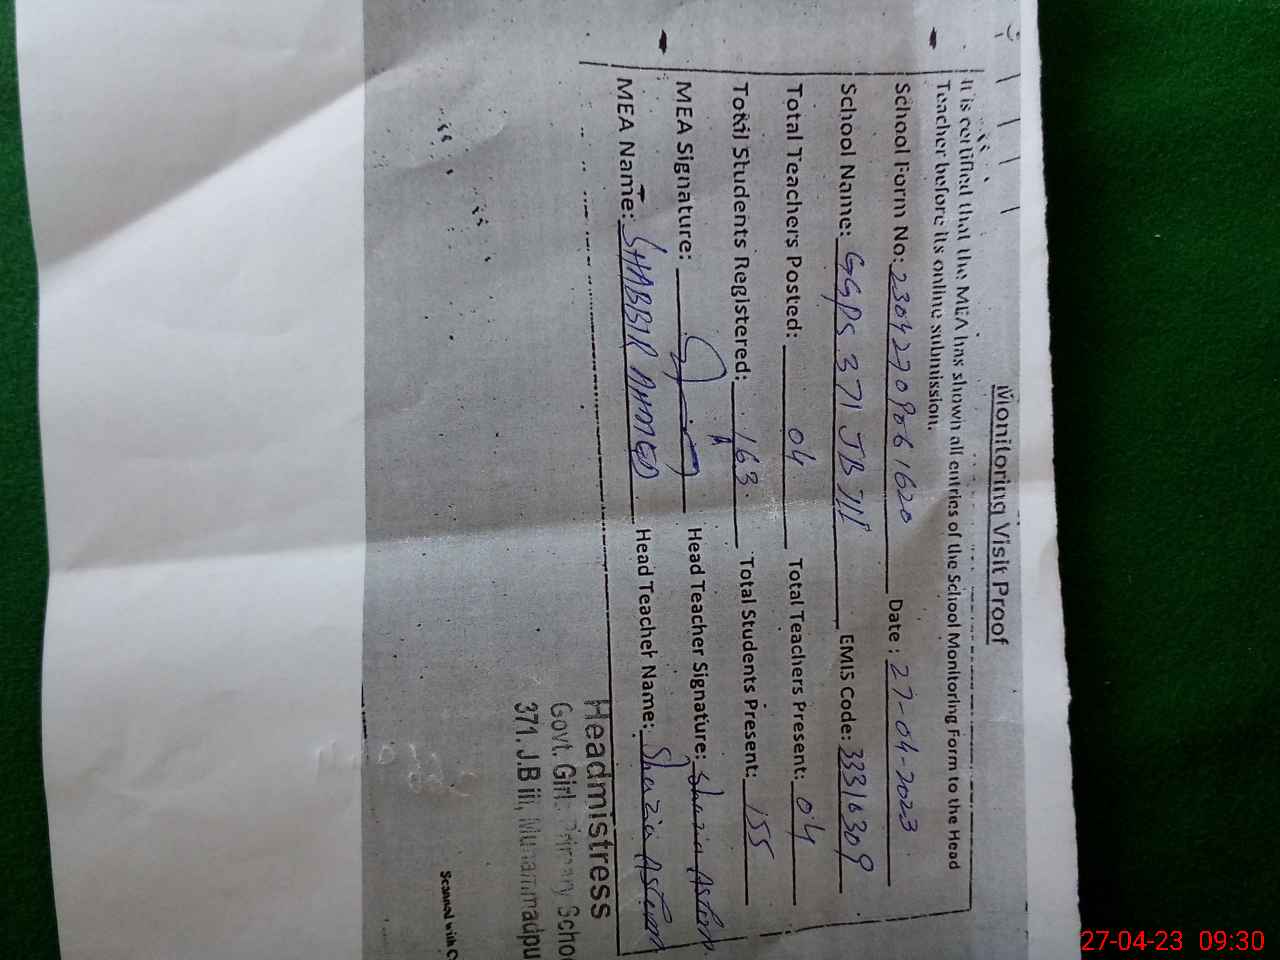 Monitoring Visit Proof
It is certified that the MEA has shown all entries of the School Monitoring Form to the Head
Teacher before its online submission.
School Form No: 23042709861620 Date : 27-04-2023
School Name: GGPS 371 JB III EMIS Code: 33310309
Total Teachers Posted: 04 Total Teachers Present: 04
Total Students Registered: 163 Total Students Present: 155
MEA Signature: Head Teacher Signature: Shazia
MEA Name: SHABBIR AHMED Head Teacher Name: Shazia
Headmistress
Govt. Girls Primary Schoo
371. J.B iii, Muhammadpu
Scanned with C
27-04-23 09:30